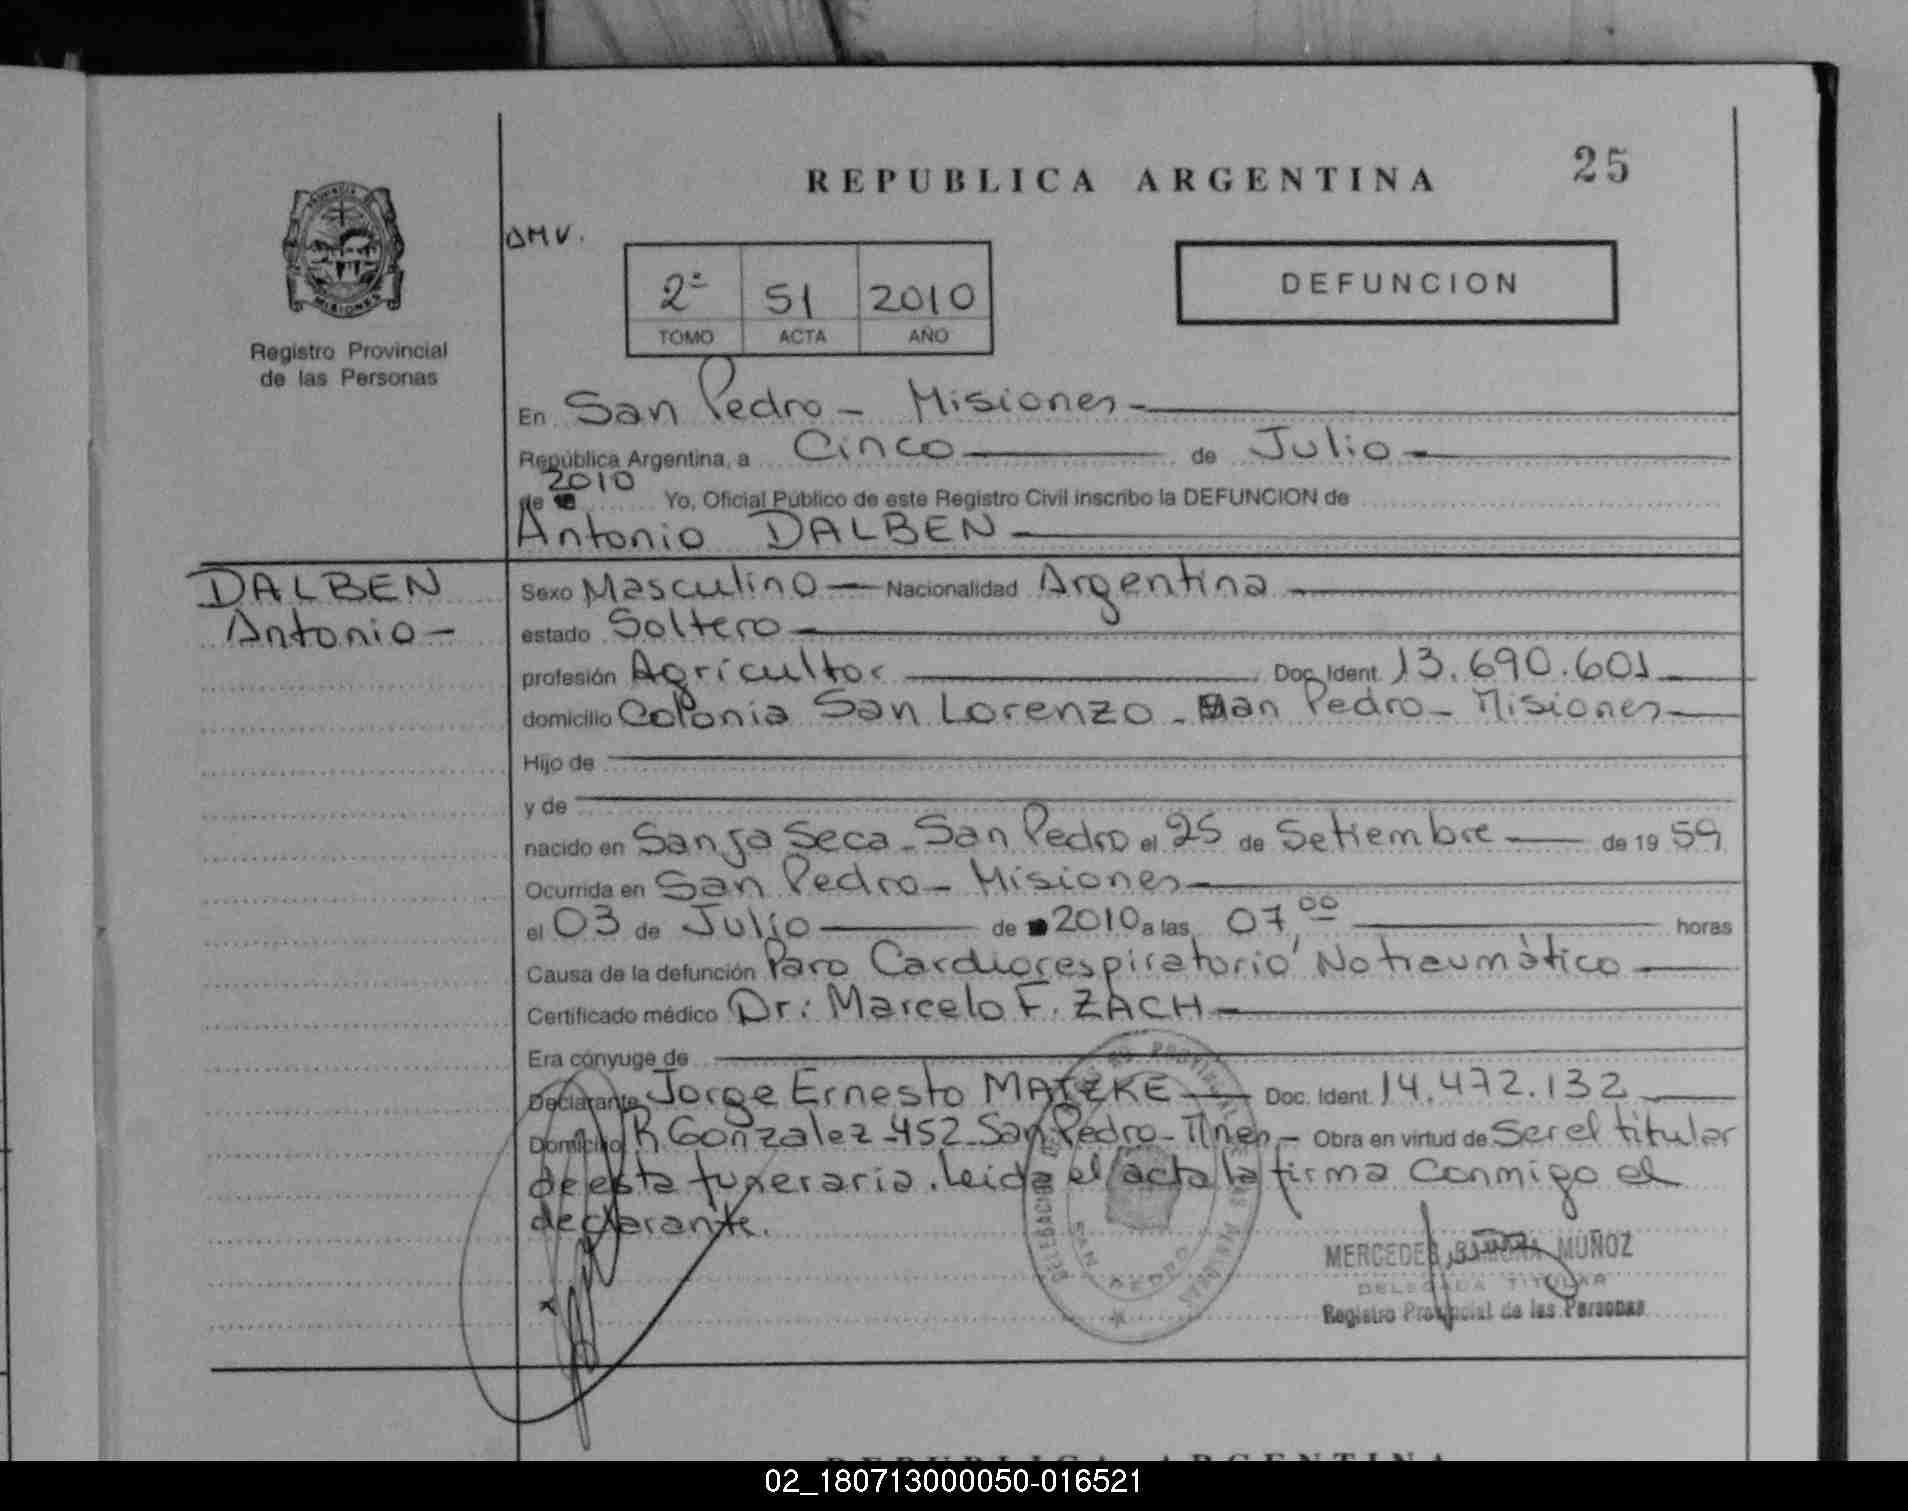 REPUBLICA ARGENTINA
25
PROVINCIA
MISIONES
Registro Provincial
de las Personas
DMV.
2ª 51 2010
TOMO ACTA AÑO
DEFUNCION
En San Pedro - Misiones -
República Argentina, a Cinco de Julio
de 2010 Yo, Oficial Público de este Registro Civil inscribo la DEFUNCION de
Antonio DALBEN
DALBEN
Antonio -
Sexo Masculino - Nacionalidad Argentina
estado Soltero
profesión Agricultor Doc. Ident. 13.690.601
domicilio Colonia San Lorenzo - San Pedro - Misiones
Hijo de
y de
nacido en Sanja Seca - San Pedro el 25 de Setiembre de 19 59
Ocurrida en San Pedro - Misiones
el 03 de Julio de 2010 a las 07,00 horas
Causa de la defunción Paro Cardiorespiratorio No traumático
Certificado médico Dr: Marcelo F. ZACH
Era cónyuge de
Declarante Jorge Ernesto MATZKE Doc. Ident. 14.472.132
Domicilio R Gonzalez - 452 - San Pedro - Mnes - Obra en virtud de Ser el titular
de esta funeraria. Leida el acta la firma Conmigo el
declarante.
MERCEDES RAMONA MUÑOZ
DELEGADA TITULAR
Registro Provincial de las Personas
SAN PEDRO
REPUBLICA ARGENTINA
02_180713000050-016521